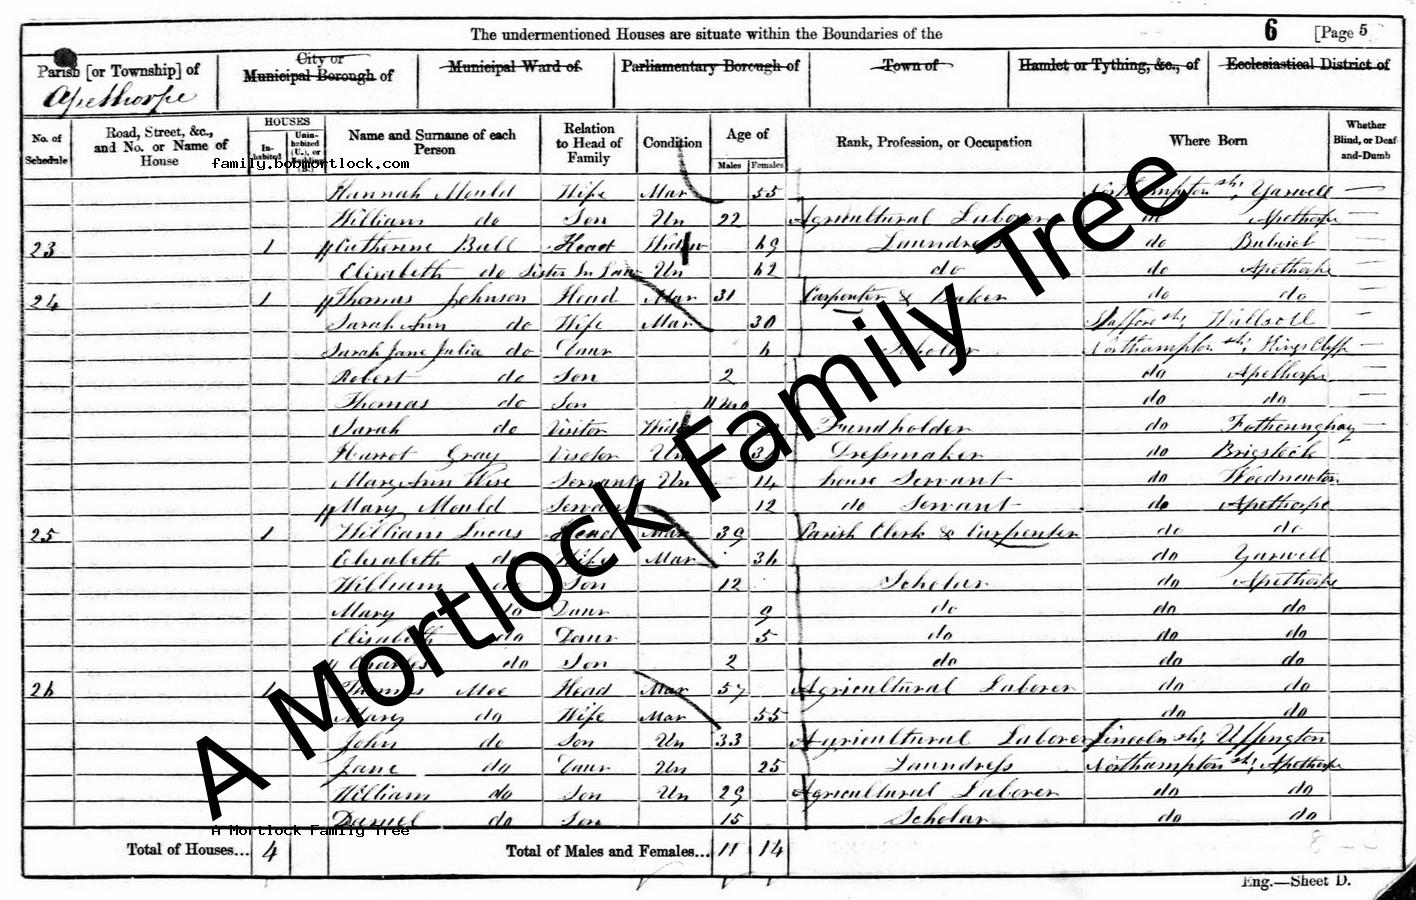 The undermentioned Houses are situate within the Boundaries of the 6 [Page 5
Parish [or Township] of City or Municipal Borough of Municipal Ward of Parliamentary Borough of Town of Hamlet or Tything, &c., of Ecclesiastical District of
Apethorpe
No. of Schedule Road, Street, &c., and No. or Name of House HOUSES In-habited Unin-habited (U.), or Building (B.) Name and Surname of each Person Relation to Head of Family Condition Age of Males Females Rank, Profession, or Occupation Where Born Whether Blind, or Deaf-and-Dumb
family.bobmortlock.com
Hannah Mould Wife Mar 55 Northamptonsh; Yarwell
William do Son Un 22 Agricultural Laborer do Apethorpe
23 1 Catherine Bull Head Widow 69 Laundress do Bulwick
Elisabeth do Sister In Law Un 62 do do Apethorpe
24 1 Thomas Johnson Head Mar 31 Carpenter & Baker do do
Sarah Ann do Wife Mar 30 Staffordsh;
Sarah Jane Julia do Daur 6 Scholar Northamptonsh; Kings Cliffe
Robert do Son 2 do Apethorpe
Thomas do Son do do
Sarah do Visitor Widow Fundholder do Fotheringhay
Gray Visitor Un Dressmaker do Brigstock
Mary Ann Servant Un 14 house Servant do Woodnewton
Mary Mould Servant 12 do Servant do Apethorpe
25 1 William Lucas Head Mar 39 Parish Clerk & Carpenter do do
Elisabeth do Wife Mar 36 do Yarwell
William do Son 12 Scholar do Apethorpe
Mary do Daur 9 do do do
Elisabeth do Daur 5 do do do
Charles do Son 2 do do do
26 1 Thomas Moe Head Mar 57 Agricultural Laborer do do
Mary do Wife Mar 55 do do
John do Son Un 33 Agricultural Laborer Lincolnsh; Uffington
Jane do Daur Un 25 Laundress Northamptonsh; Apethorpe
William do Son Un 29 Agricultural Laborer do do
Daniel do Son 15 Scholar do do
A Mortlock Family Tree
A Mortlock Family Tree
Total of Houses... 4 Total of Males and Females... 11 14
Eng.—Sheet D.